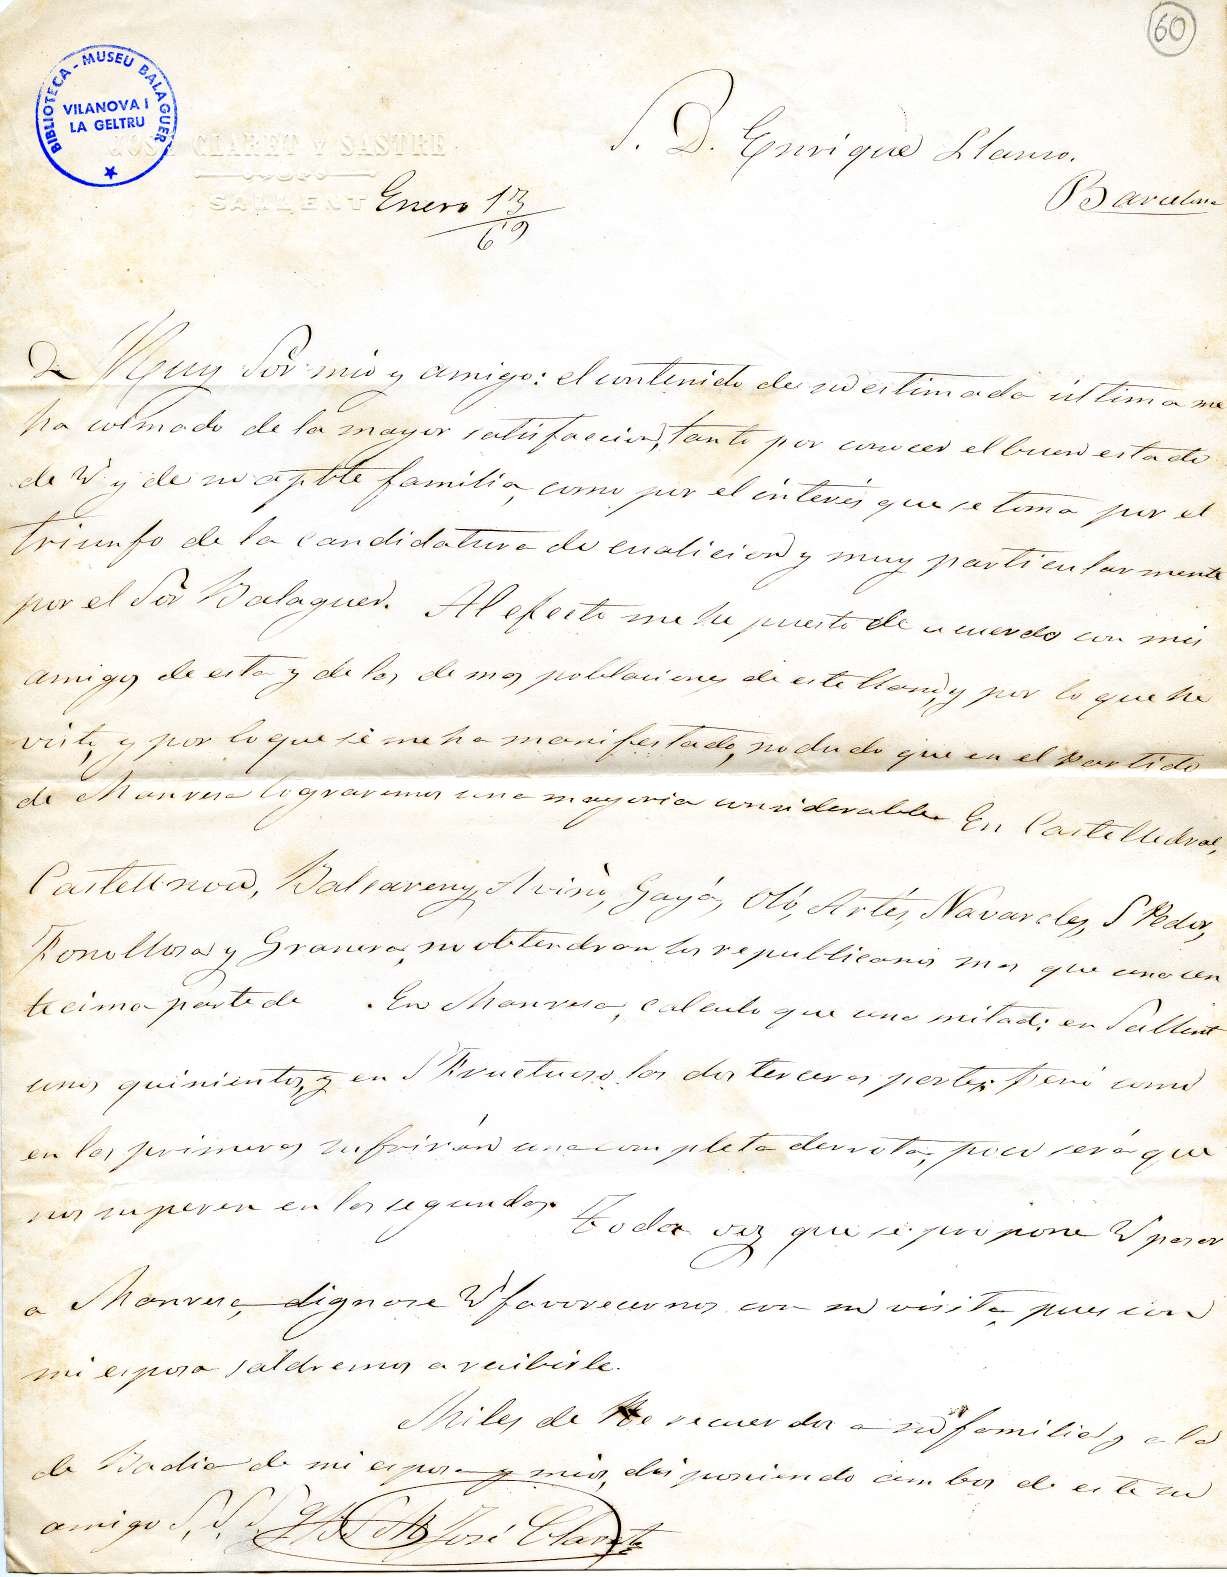 60
BIBLIOTECA - MUSEU BALAGUER
VILANOVA I
LA GELTRU
JOSÉ CLARET Y SASTRE
SALLENT
Enero 13/69
S. D. Enrique Llanso.
Barcelona
Muy Sor mio y amigo: el contenido de su estimada última me
ha colmado de la mayor satisfaccion, tanto por conocer el buen estado
de V y de su apble familia, como por el interés que se toma por el
triunfo de la candidatura de coalicion y muy particularmente
por el Sor Balaguer. Al efecto me he puesto de acuerdo con mis
amigos de esta y de las demas poblaciones de este llano, y por lo que he
visto, y por lo que se me ha manifestado, no dudo que en el Partido
de Manresa lograremos una mayoria considerable. En Castelladral,
Castellnou, Balsareny, Aviñó, Gayá, Oló, Artés, Navarcles, S Pedor,
Fonollosa y Granera, no obtendran los republicanos mas que una cen
tecima parte de . En Manresa, calculo que una mitad; en Sallent
unos quinientos, y en S Fructuoso las dos terceras partes; pero como
en los primeros sufrirán una completa derrota, poco será que
nos superen en los segundos. Toda vez que se propone V pasar
a Manresa, dignose V favorecernos con su visita, pues con
mi esposa saldremos a recibirle.
Miles de recuerdos a su familia y a la
de Badia de mi esposa y mios, disponiendo ambos de este su
amigo S. S. S. Q. B. S. M. José Claret